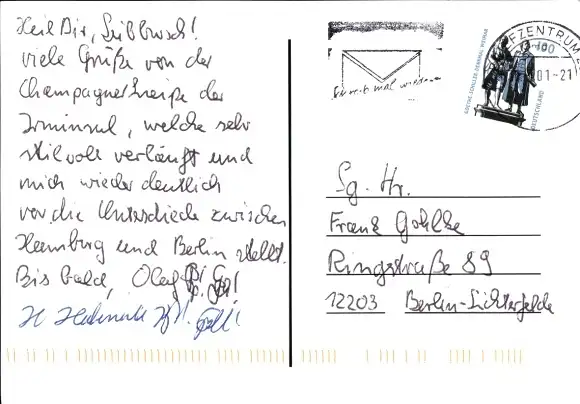 Heil Dir,
viele Grüße von der
Champagnerkneipe der
Irminsul, welche sehr
stilvoll verläuft und
mich wieder deutlich
vor die Unterschiede zwischen
Hamburg und Berlin stellt.
Bis bald, Olaf
mal wieder
GOETHE-SCHILLER-DENKMAL WEIMAR
100
DEUTSCHLAND
FZENTRUM
.01-21
Sg. Hr.
Frank Gohlke
Ringstraße 89
12203 Berlin-Lichterfelde